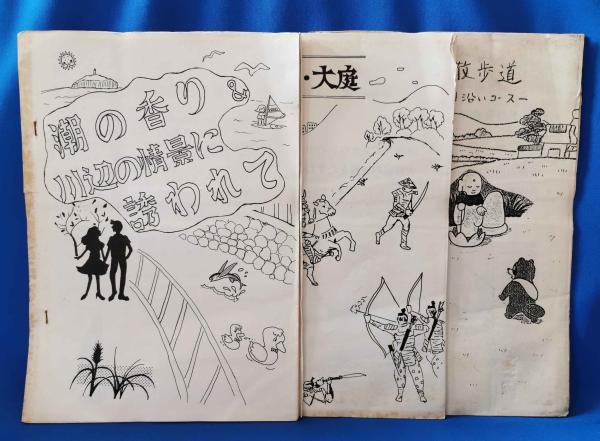 潮の香り
川辺の情景に
誘われて
・大庭
散歩道
沿いコース